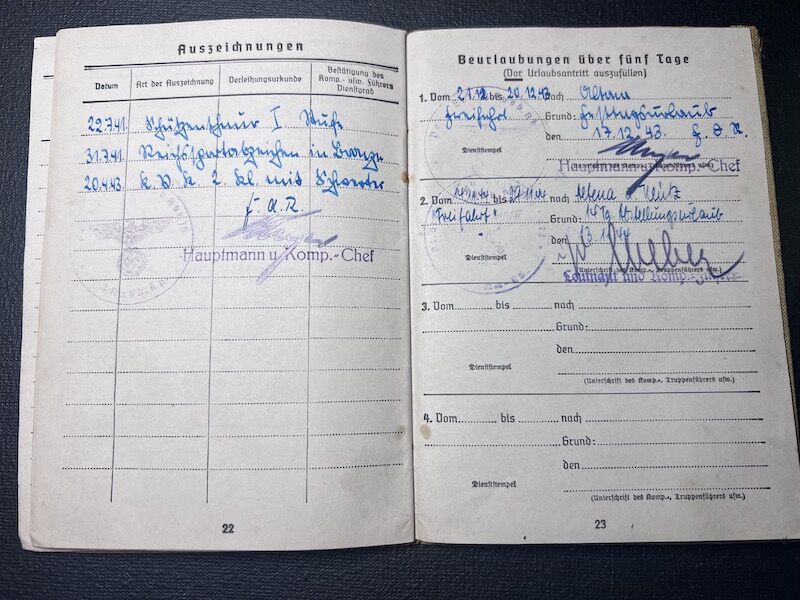 Auszeichnungen
Datum Art der Auszeichnung Verleihungsurkunde Bestätigung des Komp.- usw. Führers Dienstgrad
22.7.41. Schützenschnur I. Stufe
31.7.41. Reichssportabzeichen in Bronze
20.4.43. K. V. K. 2. Kl. mit Schwerter
F. d. R.
Hauptmann u. Komp.-Chef
22
Beurlaubungen über fünf Tage
(Vor Urlaubsantritt auszufüllen)
1. Vom 21.12. bis 20.12.43 nach Altena
Freifahrt Grund: Festungsurlaub
den 17.12.43. F. d. R.
Dienststempel
Hauptmann u. Komp.-Chef
2. Vom bis nach Altena u.
"Freifahrt" Grund:
den 13.11.44
Dienststempel (Unterschrift des Komp., Truppenführers usw.)
Leutnant und Komp.-Führer
3. Vom bis nach
Grund:
den
Dienststempel
(Unterschrift des Komp., Truppenführers usw.)
4. Vom bis nach
Grund:
den
Dienststempel
(Unterschrift des Komp., Truppenführers usw.)
23